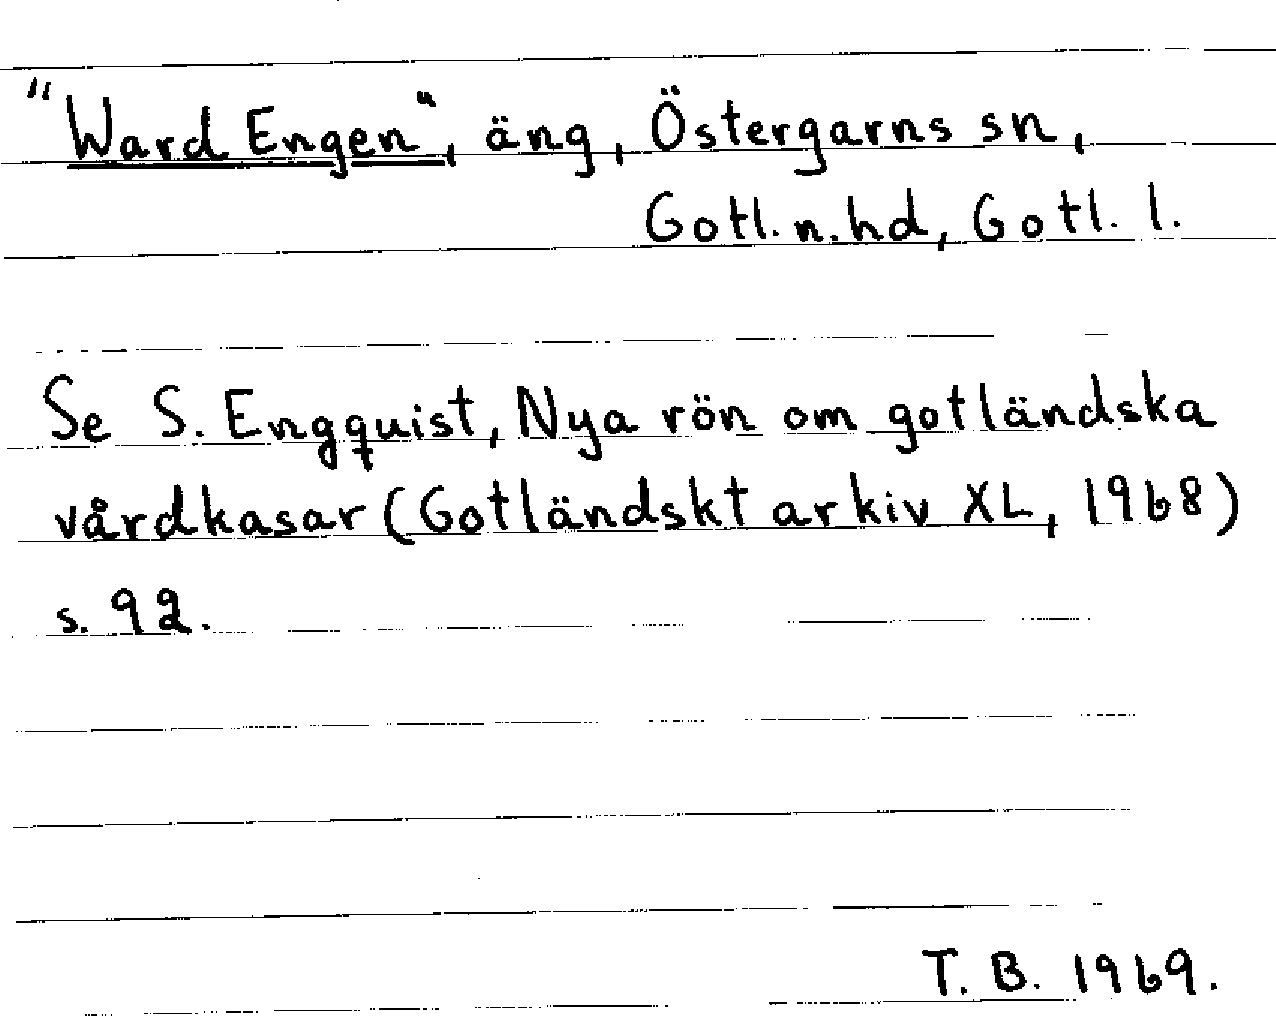 "Ward Engen", äng, Östergarns sn,
Gotl. n. hd, Gotl. l.
Se S. Engquist, Nya rön om gotländska
vårdkasar (Gotländskt arkiv XL, 1968)
s. 92.
T. B. 1969.